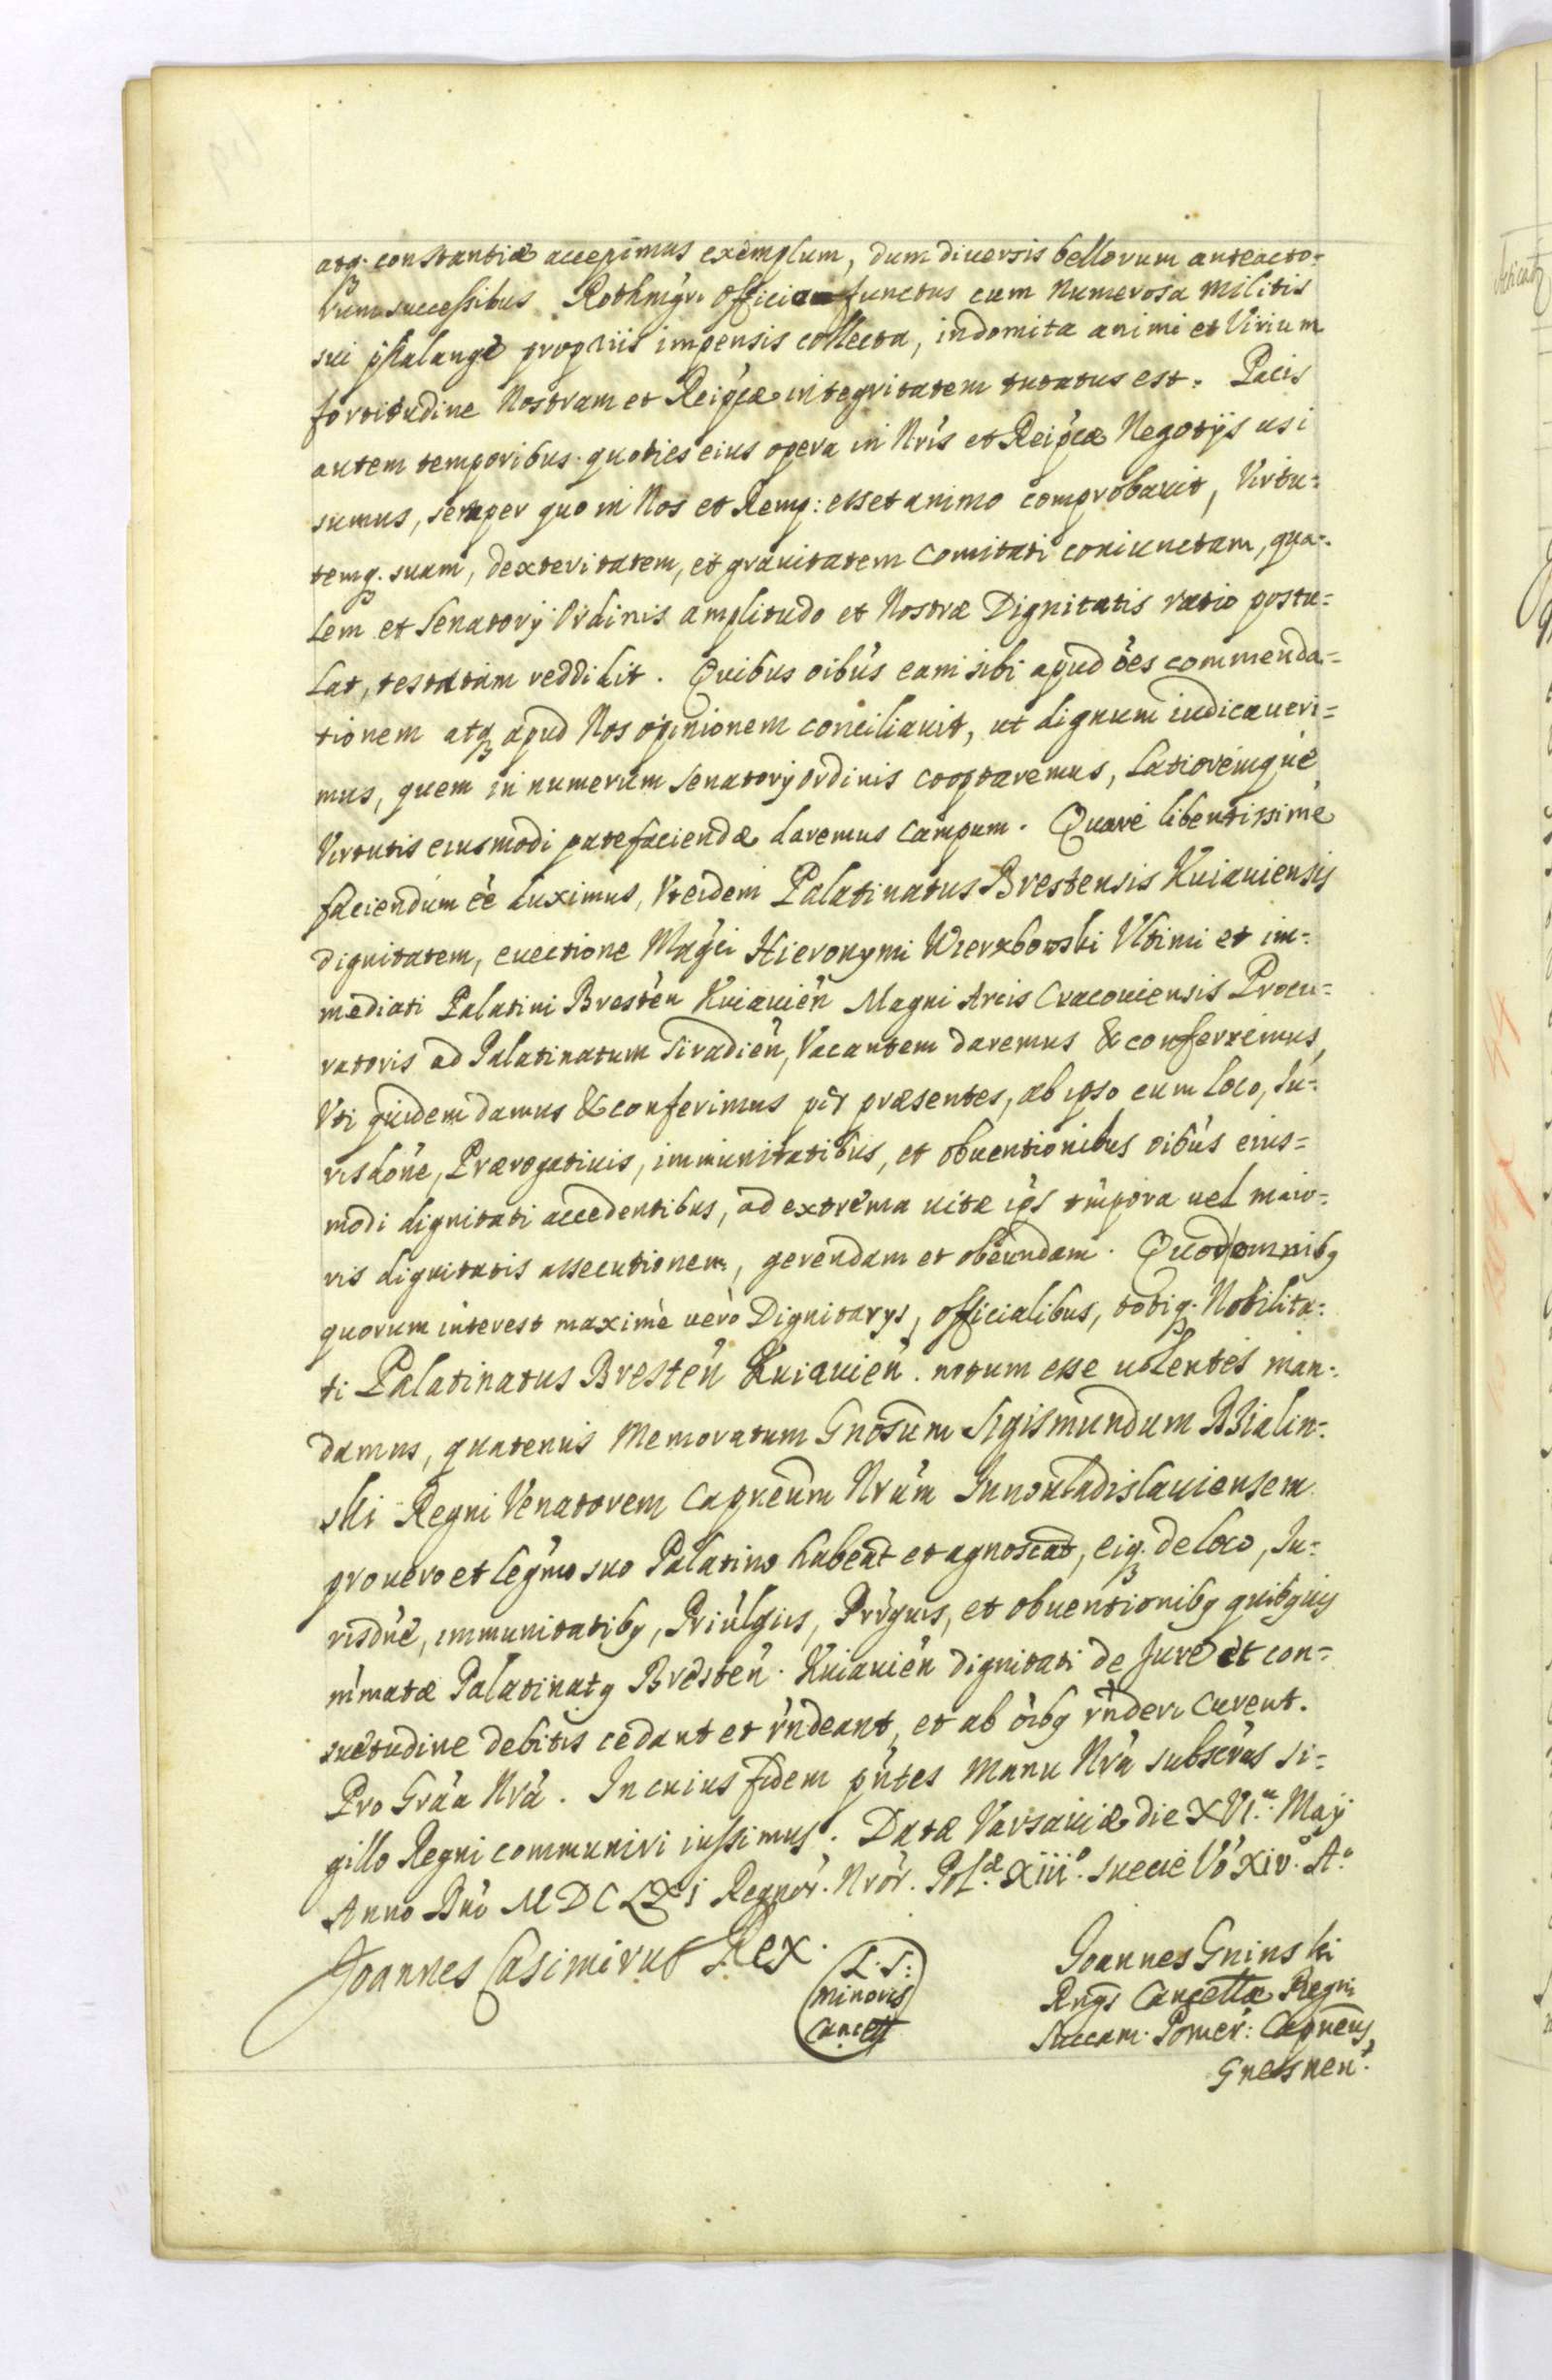 atq₃ constantiæ accepimus exemplum, dum diuersis bellorum anteacto=
rum successibus Rothmgri Officio functus cum numerosa militis
sui phalange proprijs impensis collecta, indomita animi et Virium
fortitudine Nostram et Reipcæ integritatem tutatus est. Pacis
autem temporibus quoties eius opera in Nris et Reipcæ Negotijs usi
sumus, semper quo in Nos et Remp: esset animo comprobauit, Virtu=
temq₃ suam, dexteritatem, et grauitatem comitati coniunctam, qua=
lem et Senatorij Ordinis amplitudo et Nostræ Dignitatis ratio postu=
lat, testatam reddidit. Quibus oibus eam sibi apud oes commenda=
tionem atq₃ apud Nos opinionem conciliauit, ut dignum iudicaueri=
mus, quem in numerum Senatorij ordinis cooptaremus, Latioremque
Virtutis eiusmodi patefaciendæ daremus campum. Quare libentissime
faciendum ee duximus, Vt eidem Palatinatus Brestensis Kuiauiensis
dignitatem, euectione Magci Hieronymi Wierzbowski Vltimi et im=
mediati Palatini Bresten Kuiauien Magni Arcis Cracouiensis Procu=
ratoris ad Palatinatum Siradien, Vacantem daremus & conferremus,
Vti quidem damus & conferimus per præsentes, ab ipso cum loco, Iu=
risdone, Prærogatiuis, immunitatibus, et obuentionibus oibus eius=
modi dignitati accedentibus, ad extrema uitæ ips tmpora uel maio=
ris dignitatis assecutionem, gerendam et obeundam. Quod omnibq
quorum interest maxime uero Dignitarys, officialibus, totiq₃ Nobilita=
ti Palatinatus Bresten Kuiauien. notum esse uolentes man=
damus, quatenus Memoratum Gnosum Sigismundum Dzialin=
ski Regni Venatorem Capneum Nrum Junouladislauiensem
pro uero et legmo suo Palatino habeat et agnoscat, eiq₃ de loco, Iu=
risdne, immunitatibq, Priulgiis, Prrguis, et obuentionibq quibquis
nimatæ Palatinatq Bresten. Kuiauien dignitati de Jure et con=
suetudine debitis cedant et rndeant, et ab oibq rnderi curent.
Pro Graa Nra. In cuius fidem pntes Manu Nra subscras si=
gillo Regni communiri iussimus. Datæ Varsauiæ die XVIᵃ. Maij
Anno Dni MDCLXI Regnor. Nror. Polᵃᵉ XIIIº. Sueciæ Vo XIV. Aº
Joannes Casimirus Rex.
L. S:
Minoris
Cancell
Joannes Gninski
Rngs Cancellæ Regni
Succam. Pomer: Capneus
Gnesnen.